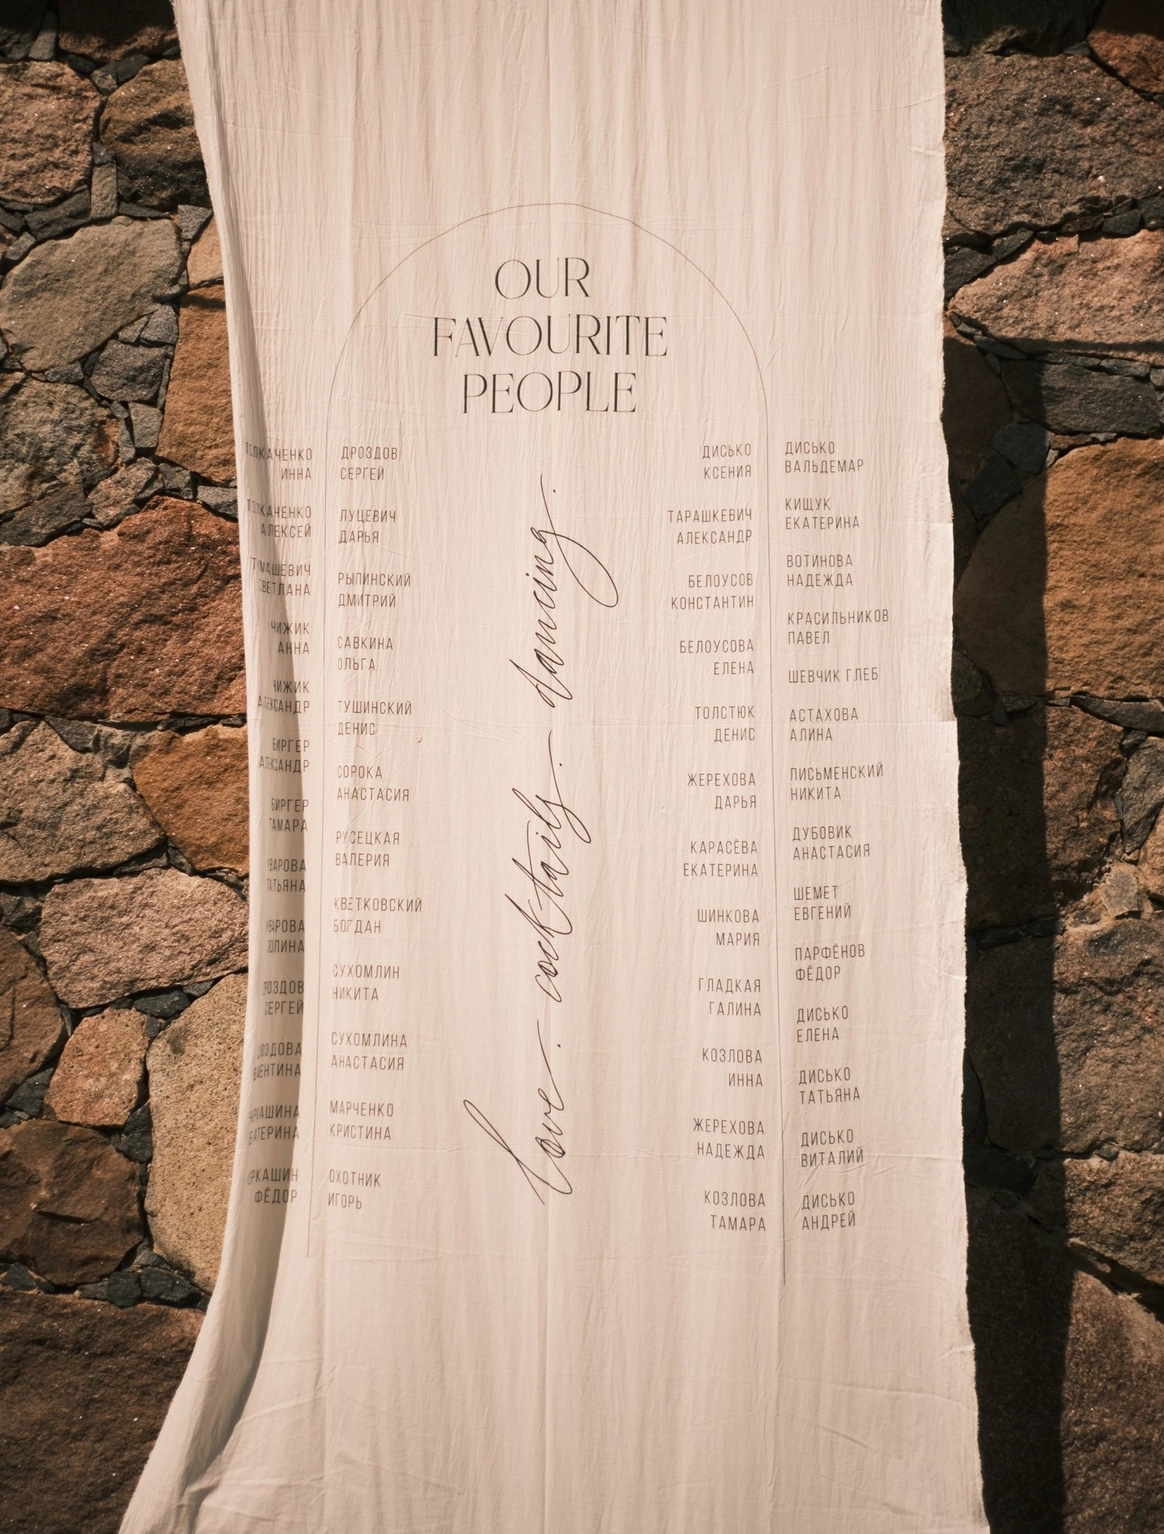 OUR
FAVOURITE
PEOPLE
love. cocktails. dancing.
ИННА
АЛЕКСЕЙ
ЧИЖИК
АННА
ЧИЖИК
АЛЕКСАНДР
БИРГЕР
АЛЕКСАНДР
БИРГЕР
ТАМАРА
ТАТЬЯНА
СЕРГЕЙ
ФЁДОР
ДРОЗДОВ
СЕРГЕЙ
ЛУЦЕВИЧ
ДАРЬЯ
РЫПИНСКИЙ
ДМИТРИЙ
САВКИНА
ОЛЬГА
ТУШИНСКИЙ
ДЕНИС
СОРОКА
АНАСТАСИЯ
РУСЕЦКАЯ
ВАЛЕРИЯ
КВЕТКОВСКИЙ
БОГДАН
СУХОМЛИН
НИКИТА
СУХОМЛИНА
АНАСТАСИЯ
МАРЧЕНКО
КРИСТИНА
ОХОТНИК
ИГОРЬ
ДИСЬКО
КСЕНИЯ
ТАРАШКЕВИЧ
АЛЕКСАНДР
БЕЛОУСОВ
КОНСТАНТИН
БЕЛОУСОВА
ЕЛЕНА
ТОЛСТЮК
ДЕНИС
ЖЕРЕХОВА
ДАРЬЯ
КАРАСЁВА
ЕКАТЕРИНА
ШИНКОВА
МАРИЯ
ГЛАДКАЯ
ГАЛИНА
КОЗЛОВА
ИННА
ЖЕРЕХОВА
НАДЕЖДА
КОЗЛОВА
ТАМАРА
ДИСЬКО
ВАЛЬДЕМАР
КИЩУК
ЕКАТЕРИНА
ВОТИНОВА
НАДЕЖДА
КРАСИЛЬНИКОВ
ПАВЕЛ
ШЕВЧИК ГЛЕБ
АСТАХОВА
АЛИНА
ПИСЬМЕНСКИЙ
НИКИТА
ДУБОВИК
АНАСТАСИЯ
ШЕМЕТ
ЕВГЕНИЙ
ПАРФЁНОВ
ФЁДОР
ДИСЬКО
ЕЛЕНА
ДИСЬКО
ТАТЬЯНА
ДИСЬКО
ВИТАЛИЙ
ДИСЬКО
АНДРЕЙ